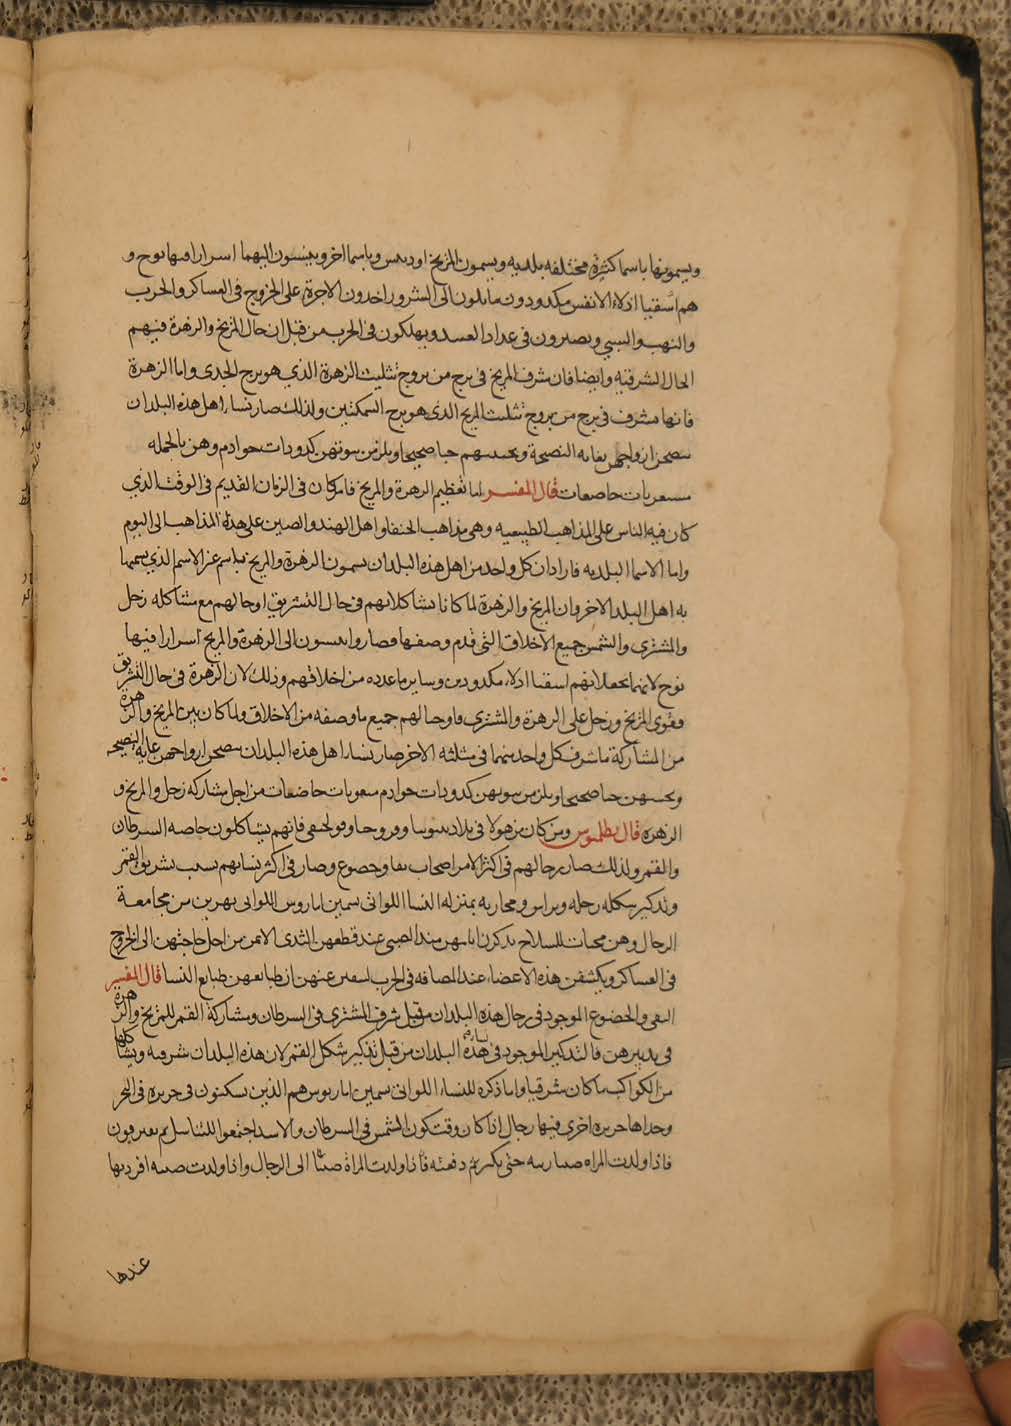 ويسمونها باسما كثيرة مختلفه بلديه ويسمون المريخ اودنس وباسما اخر وينسبون اليهما اسرارا فيها نوح و
هم اسقيا اذلاء الانفس مكدودون مايلون الى الشرور ياخدون الاجرة على الخروج فى العساكر والحرب
والنهب والسبي ويصيرون فى عداد العبيد ويهلكون فى الحرب من قبل ان حال المريخ والزهرة فيهم
الحال الشرقيه وايضا فان شرف المريخ فى برج من بروج تثليث الزهرة الذي هو برج الجدى واما الزهرة
فانها تشرف فى برج من بروج تثليث المريخ الذى هو برج السمكتين ولذلك صار نساء اهل هذه البلدان
ينصحن ازواجهن بغايه النصيحة ويحببنهم حبا صحيحا ويلزمن بيوتهن كدودات خوادم وهن بالجمله
متعوبات خاضعات قال المفسر اما تعظيم الزهرة والمريخ فامر كان فى الزمان القديم فى الوقت الذي
كان فيه الناس على المذاهب الطبيعيه وهى مذاهب الحنفا واهل الهند والصين على هذه المذاهب الى اليوم
واما الاسما البلديه فاراد ان كل واحد من اهل هذه البلدان يسمون الزهرة والمريخ باسم غير الاسم الذي يسميها
به اهل البلد الاخر وان المريخ والزهرة لما كانا يشاكلانهم فى حال التشريق اوجبا لهم مع مشاكله زحل
والمشترى والشمس جميع الاخلاق التى قدم وصفها فصاروا ينسبون الى الزهرة والمريخ اسرارا فيها
نوح لانهما يجعلانهم اسقيا اذلاء مكدودين وساير ما عدده من اخلاقهم وذلك لان الزهرة فى حال التشريق
فقوى المريخ وزحل على الزهرة والمشترى فاوجبا لهم جميع ما وصفه من الاخلاق ولما كان بين المريخ والزهرة
من المشاركة ما شرف كل واحد منهما فى مثلثه الاخر صار نساء اهل هذه البلدان ينصحن ازواجهن غايه النصيحه
ويحببنهن حبا صحيحا ويلزمن بيوتهن كدودات خوادم متعوبات خاضعات من اجل مشاركه زحل والمريخ و
الزهره قال بطلميوس ومن كان من هولا فى بلاد بيثونيا وفروجيا وقولخيقى فانهم يشاكلون خاصه السرطان
والقمر ولذلك صار رجالهم فى اكثر الامر اصحاب تقا وخضوع وصار فى اكثر نسايهم بسبب تشريق القمر
وتذكير شكله رجله ومراس ومحاربه بمنزله النسا اللواتى يسمين امازوس اللواتى يهربن من مجامعة
الرجال وهن محبات للسلاح يذكرن اناثهن منذ الصبى عند قطعهن الثدى الايمن من اجل حاجتهن الى الخروج
فى العساكر ويكشفن هذه الاعضاء عند المصافه فى الحرب لينفين عنهن ان طبايعهن طبايع النسا قال المفسر
التقى والخضوع الموجود فى رجال هذه البلدان من قبل شرف المشترى فى السرطان ومشاركة القمر للمريخ والزهرة
فى تدبيرهن فالتذكير الموجود فى نساء هذه البلدان من قبل تذكير شكل القمر لان هذه البلدان شرقيه ويشاكلها
من الكواكب ما كان شرقيا واما ذكره للنساء اللواتى يسمين امازيوس هم الذين يسكنون فى جزيره فى البحر
وحداها جزيره اخرى فيها رجال اذا كان وقت كون الشمس فى السرطان والاسد اجتمعوا للتناسل ثم يفترقون
فاذا ولدت المراه صبيا ربته حتى يكبر ثم دفعته فاذا ولدت المراة صبيا الى الرجال واذا ولدت صبيه افردتها
عندها